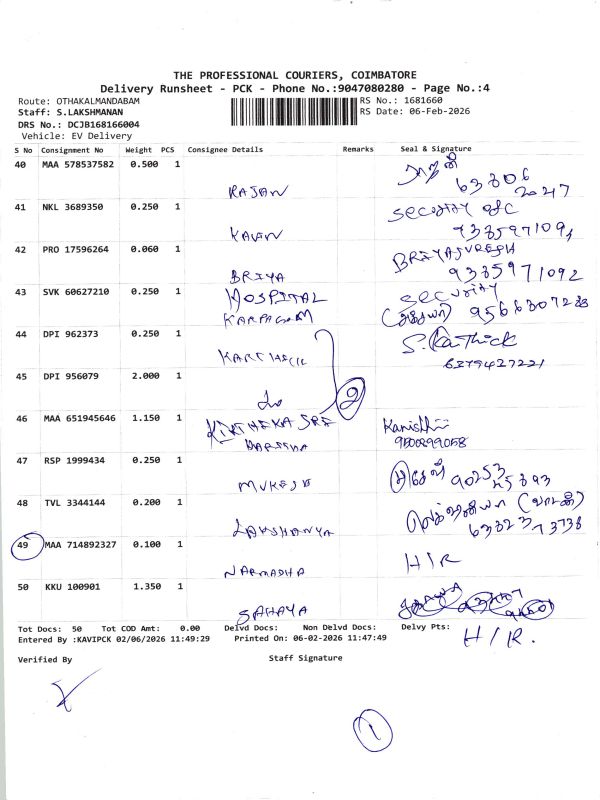 THE PROFESSIONAL COURIERS, COIMBATORE
Delivery Runsheet - PCK - Phone No.:9047080280 - Page No.:4
Route: OTHAKALMANDABAM
RS No.: 1681660
Staff: S.LAKSHMANAN
RS Date: 06-Feb-2026
DRS No.: DCJB168166004
Vehicle: EV Delivery
S No Consignment No Weight PCS Consignee Details Remarks Seal & Signature
40 MAA 578537582 0.500 1
RAJAN
41 NKL 3689350 0.250 1
security
KAVIN
42 PRO 17596264 0.060 1
BRIYASURESH
BRIYA 9385971092
43 SVK 60627210 0.250 1
HOSPITAL security
KARPAGAM
44 DPI 962373 0.250 1
S.Karthick
6379427221
45 DPI 956079 2.000 1
do 2
46 MAA 651945646 1.150 1
KIRTHEKA SRE
47 RSP 1999434 0.250 1
MUKESH
48 TVL 3344144 0.200 1
LAKSHANYA
49 MAA 714892327 0.100 1
NARMADHA H/R
50 KKU 100901 1.350 1
SAHAYA
Tot Docs: 50 Tot COD Amt: 0.00 Delvd Docs: Non Delvd Docs: Delvy Pts:
H/R.
Entered By :KAVIPCK 02/06/2026 11:49:29 Printed On: 06-02-2026 11:47:49
Verified By Staff Signature
1